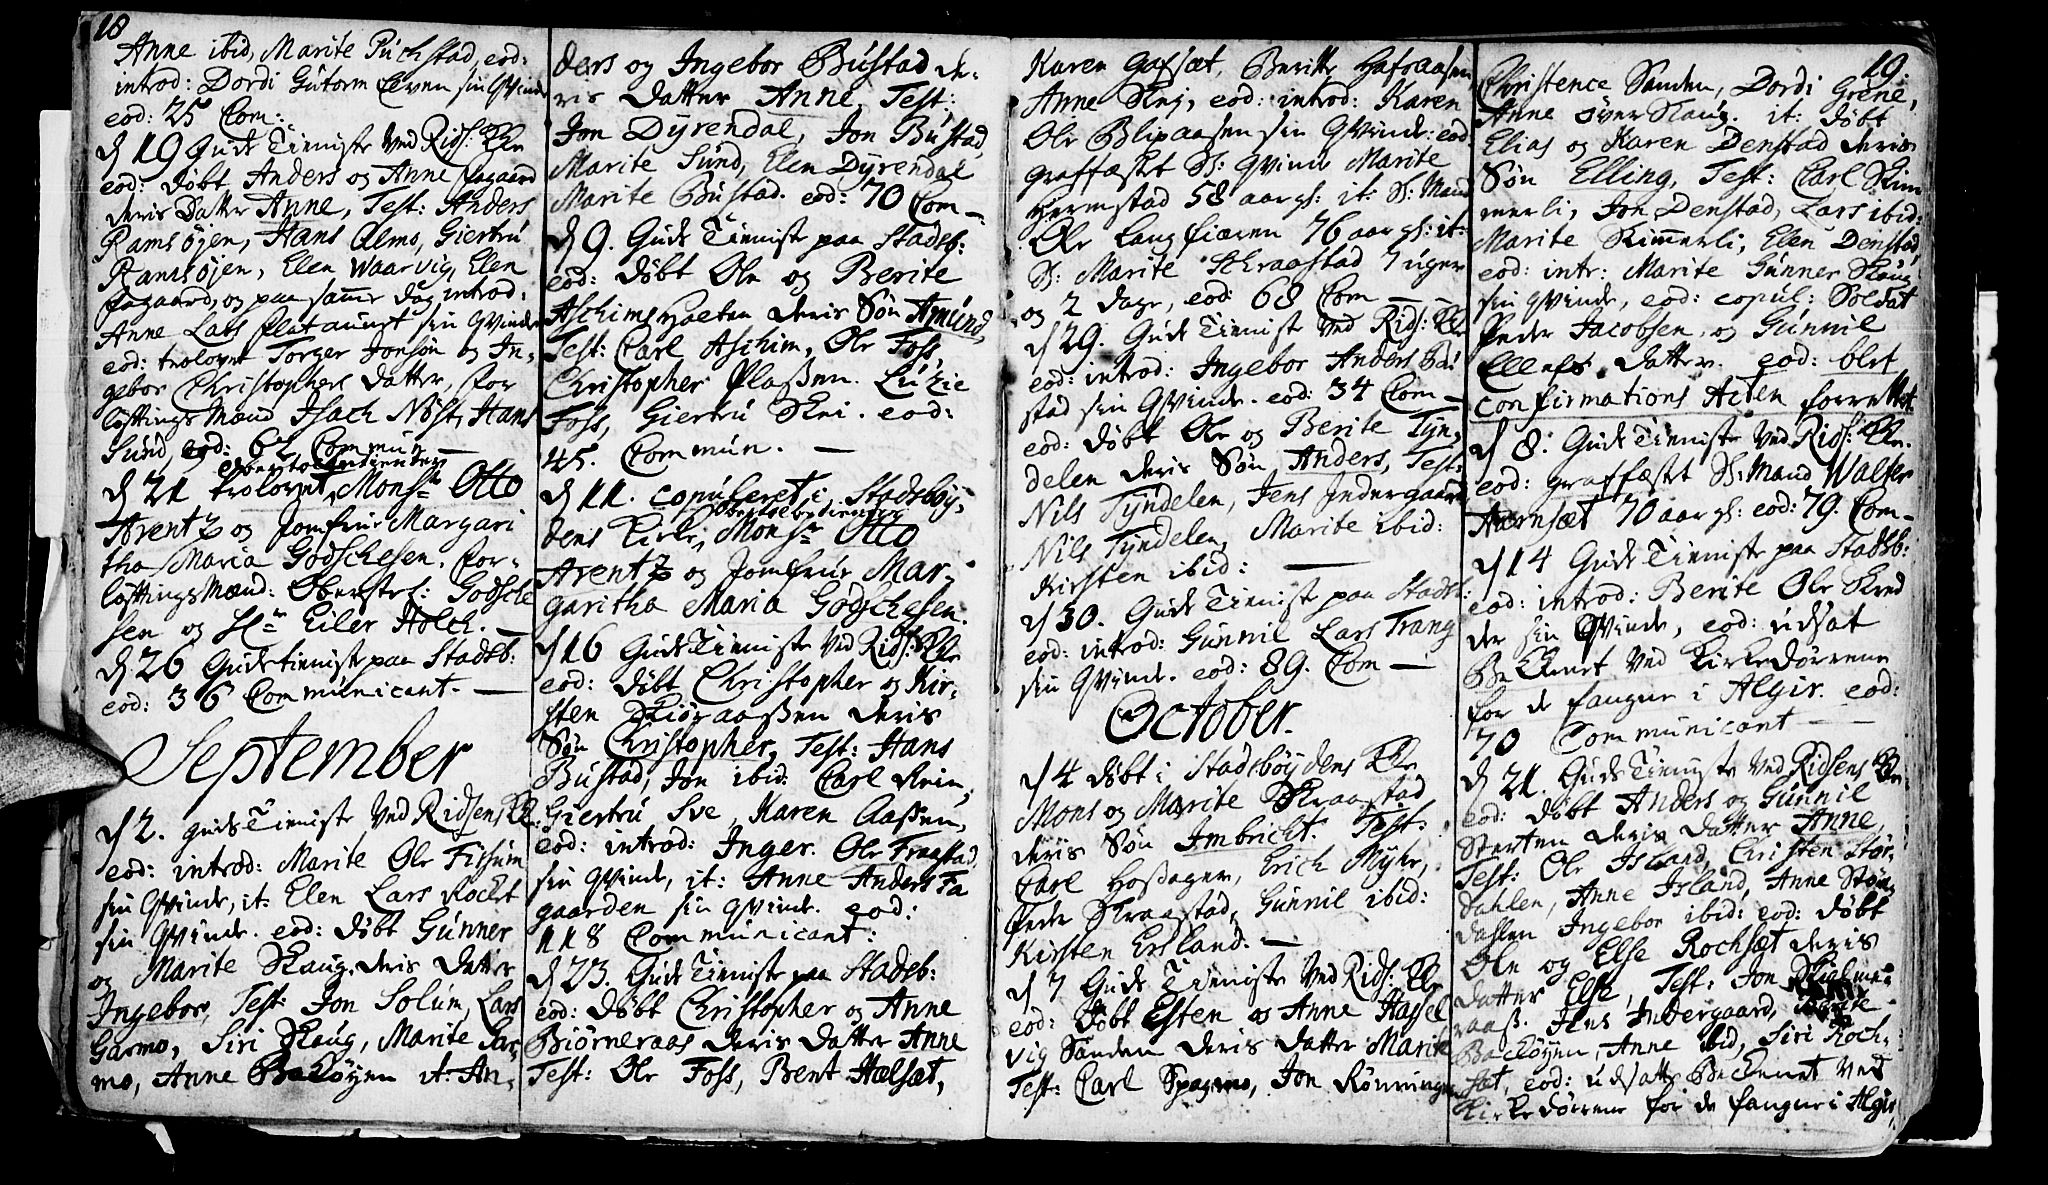 18
Anne ibid, Marite Puchstad, eod:
introd: Dordi Gutorm Elven sin Qvinde
eod: 25 Com:
d 19 Guds Tieniste Ved Ridß: Kle
eod: døbt Anders og Anne Fagaard
deris Datter Anne, Test: Anders
Ramsøjen, Hans Almo, Giertru
Ramsøjen, Elen Waarvig, Elen
Fagaard, og paa samme dag introd:
Anne Lars Plataunet sin Qvinde
eod: trolovet Torger Jonsøn og In-
gebor Christophers Datter, for
løftings Mænd Isach Nøst, Hans
Sund, eod: 62 Commun
d 21 trolovet Mons:r Otto
Arentz og Jomfrue Margari
tha Maria Godschesen. For-
løftings Mænd: Oberstl: Godsche
sen og Hr: Eiler Holch. —
d 26 Gudstieniste paa Stadsb:
eod: 36 Communicant. —
September
d 2. Guds Tieniste Ved Ridsens Kl:
eod: introd: Marite Ole Fissum
sin Qvinde, it: Elen Lars Rocket
sin Qvinde. eod: døbt Gunner
og Marite Skaug, deris datter
Ingebor, Test: Jon Solum, Lars
Garmo, Siri Skaug, Marite Gar-
mo, Anne Bachøyen it: An-
ders og Ingebor Bustad de-
ris datter Anne, Test:
Jon Dyrendal, Jon Bustad,
Marite Sund, Elen Dyrendal
Marite Bustad. eod: 70 Com—
d 9. Guds Tieniste paa Stadsb:
eod: døbt Ole og Berite
Aschimshaeten deris Søn Amund,
Test: Carl Aschim, Ole Foss,
Christopher Plaßen. Luzie
Foss, Giertru Skei. eod:
45. Commun. —
d 11. copuleret i Stadsbøy-
dens Kirke, Mons:r Otto
Arentz og Jomfrue Mar-
garitha Maria Godschesen.
d 16 Guds Tieniste Ved Ridß: Kle
eod: døbt Christopher og Kir-
sten Skiøraaßen deris
Søn Christopher, Test: Hans
Bustad, Jon ibid: Carl Rein,
Giertru Sve, Karen Aaßen,
eod: introd: Inger Ole Fraastad
sin Qvinde, it: Anne Anders Fa
gaarden sin Qvinde. eod:
118 Communicant:
d 23. Guds Tieniste paa Stadsb:
eod: døbt Christopher og Anne
Biørneraas deris datter Anne
Test: Ole Foss, Bent Hælsæt,
Karen Gafsæt, Beritte Hafsaasen,
Anne Skej, eod: introd: Karen
Ole Blixaasen sin Qvinde: eod:
graffæstet S: Qvinde Marite
Hermstad 58 aar gl: it: S: Mand
Ole Langfiæren 76 aar gl: it:
S: Marite Schraastad 7 uger
og 2 dage, eod: 68 Com —
d 29. Guds Tieniste Ved Ridß: Kle
eod: introd: Ingebor Anders Bu:
stad sin Qvinde. eod: 34 Com —
eod: døbt Ole og Berite Tyn-
delen deris Søn Anders, Test:
Nils Tyndelen, Jens Indergaard
Nils Tyndelen, Marite ibid:
Kirsten ibid: —
d 30. Guds Tieniste paa Stadsb:
eod: introd: Gunnil Lars Trang
sin Qvinde. eod: 89. Com —
October.
d 4 døbt i Stadsbøydens Kle
Mons og Marite Skraastad
deris Søn Imbricht. Test:
Carl Hosdager, Erich Myhr,
Peder Skraastad, Gunnil ibid:
Kirsten Ersland. —
d 7 Guds Tieniste Ved Ridß: Kle
eod: døbt Esten og Anne Hassel
vig Sanden deris datter Marite
Test: Carl Spagmo, Jon Rønningen
19.
Christence Sanden, Dordi Grene,
Anne Øver Skaug. it: døbt
Elias og Karen Denstad deris
Søn Elling, Test: Carl Skim
merli, Jon Denstad, Lars ibid:
Marite Skimmerli, Elen Denstad
eod: intr: Marite Gunner Skaug
sin Qvinde, eod: copul: Soldat
Peder Jacobsen, og Gunnil
Ellefs datter. eod: blef
Confirmations Acten forrettet.
d 8: Guds Tieniste Ved Ridß: Kle.
eod: graffæstet S: Mand Walter
Aarnsæt 70 aar gl: eod: 79. Com—
d 14 Guds Tieniste paa Stadsb:
eod: introd: Berite Ole Skred
der sin Qvinde, eod: udsat
Beckenet Ved Kirkedørrene
for de fangne i Algir. eod:
70 Communicant —
d 21. Guds Tieniste Ved Ridsens Kle:
eod: døbt Anders og Gunnil
Sterten deris datter Anne,
Test: Ole Island, Christen Stør-
dahlen, Anne Island, Anne Støn
dahlen Ingebor ibid: eod: døbt
Ole og Else Rochsæt deris
datter Else, Test: Jon Skielme-
raas. Jens Indergaard, Marite
Bachøyen, Anne ibid, Siri Roch-
sæt, eod: udsatte Beckenet Ved
Kirkedørrene for de fangne i Algir,